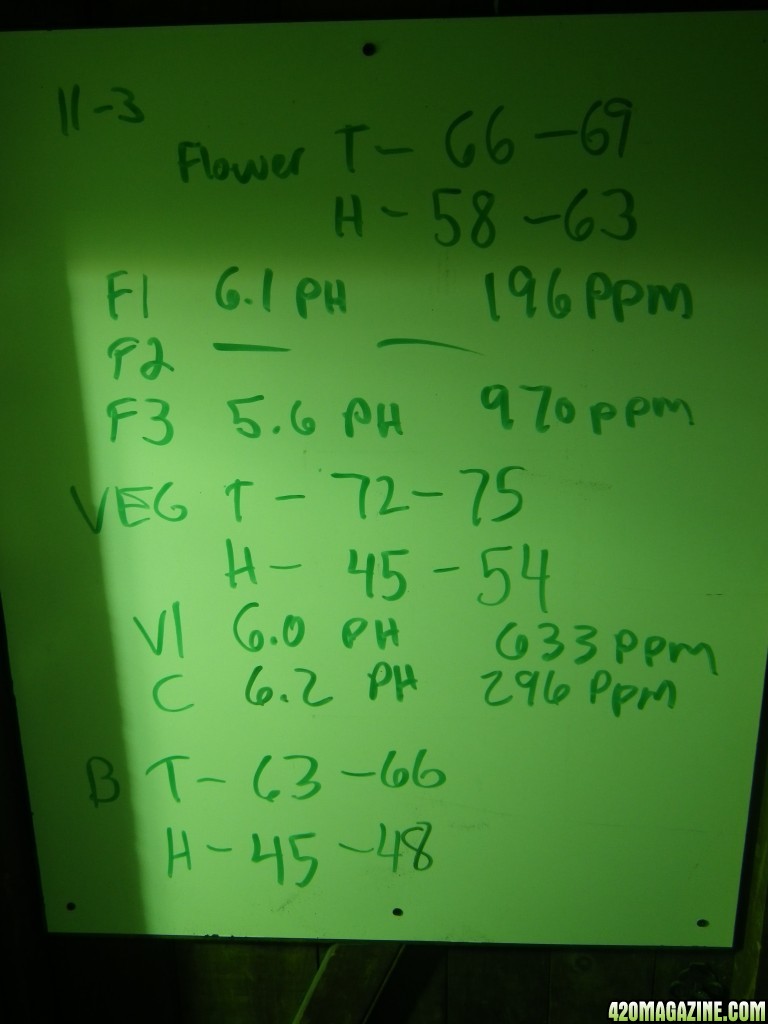 11-3
Flower T- 66-69
H- 58-63
F1 6.1 PH 196 PPM
F2 — —
F3 5.6 PH 970 ppm
VEG T- 72-75
H- 45-54
V1 6.0 PH 633 PPM
C 6.2 PH 296 PPM
B T- 63-66
H- 45-48
420MAGAZINE.COM